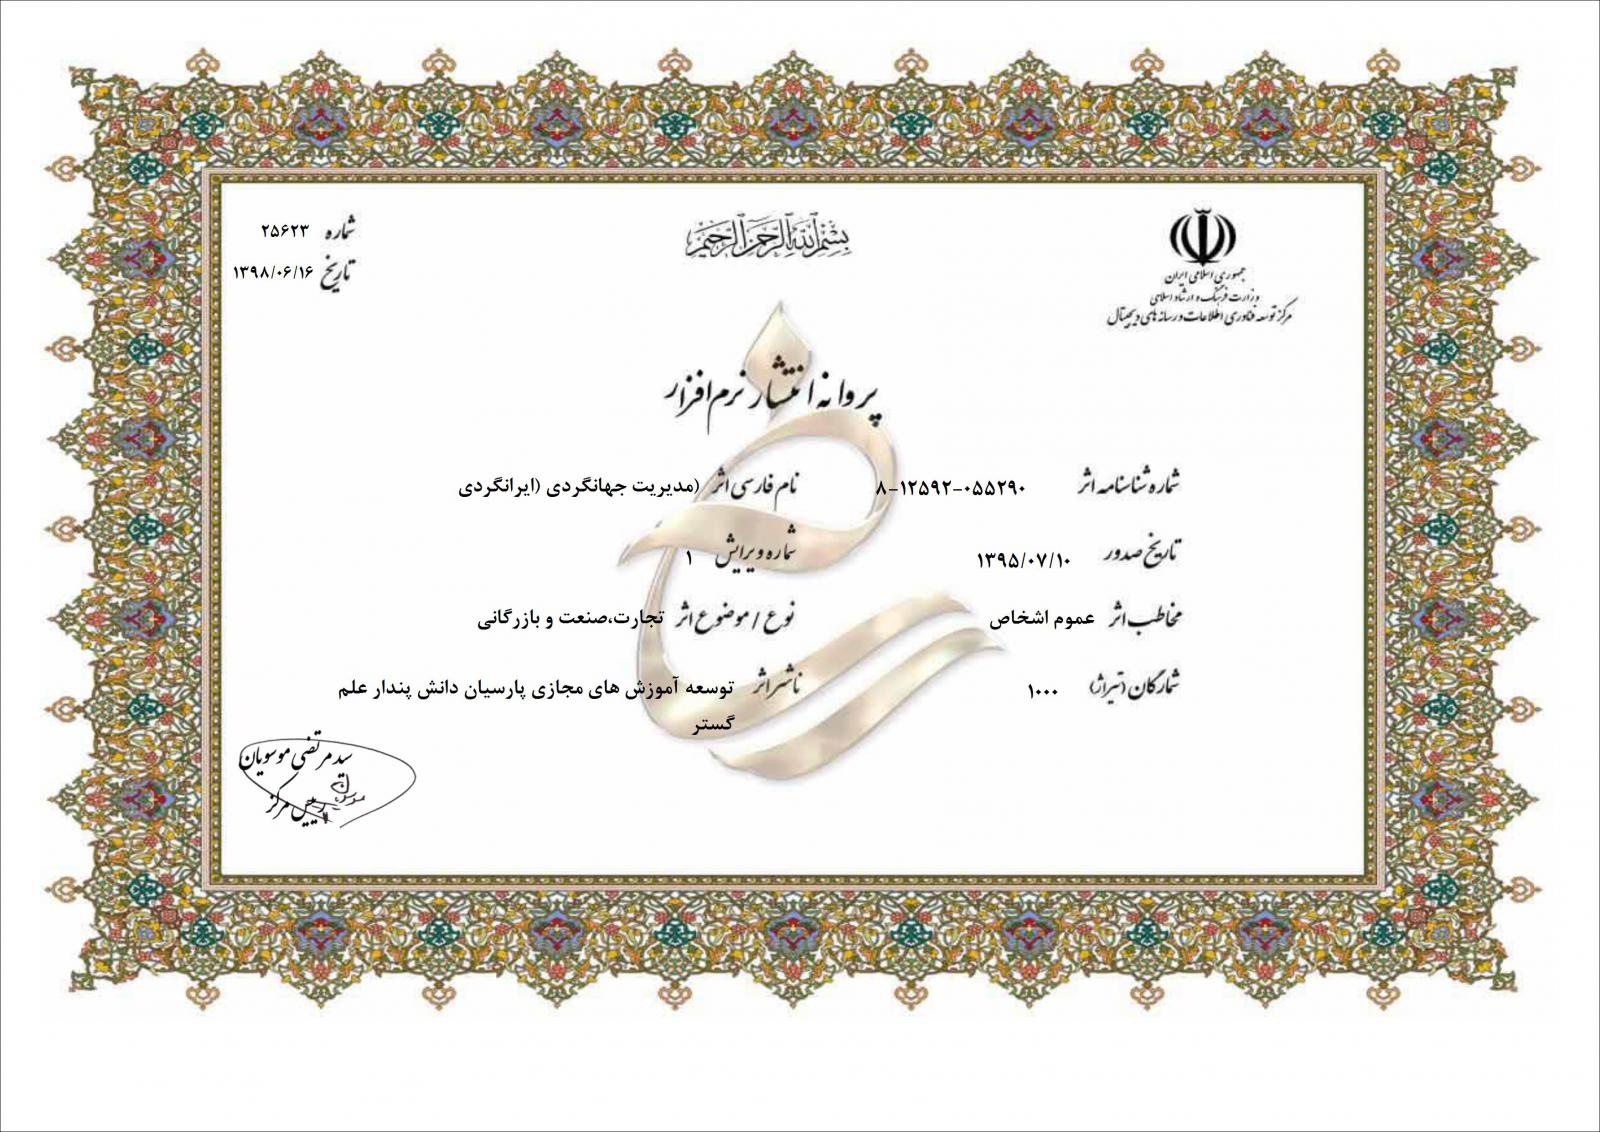 بسم الله الرحمن الرحیم
جمهوری اسلامی ایران
وزارت فرهنگ و ارشاد اسلامی
مرکز توسعه فناوری اطلاعات و رسانه های دیجیتال
شماره ۲۵۶۲۳
تاریخ ۱۳۹۸/۰۶/۱۶
پروانه انتشار نرم افزار
شماره شناسنامه اثر ۸-۱۲۵۹۲-۰۵۵۲۹۰
نام فارسی اثر (مدیریت جهانگردی (ایرانگردی
تاریخ صدور ۱۳۹۵/۰۷/۱۰
شماره ویرایش ۱
مخاطب اثر عموم اشخاص
نوع / موضوع اثر تجارت،صنعت و بازرگانی
شمارگان (تیراژ) ۱۰۰۰
ناشر اثر توسعه آموزش های مجازی پارسیان دانش پندار علم
گستر
سید مرتضی موسویان
رییس مرکز